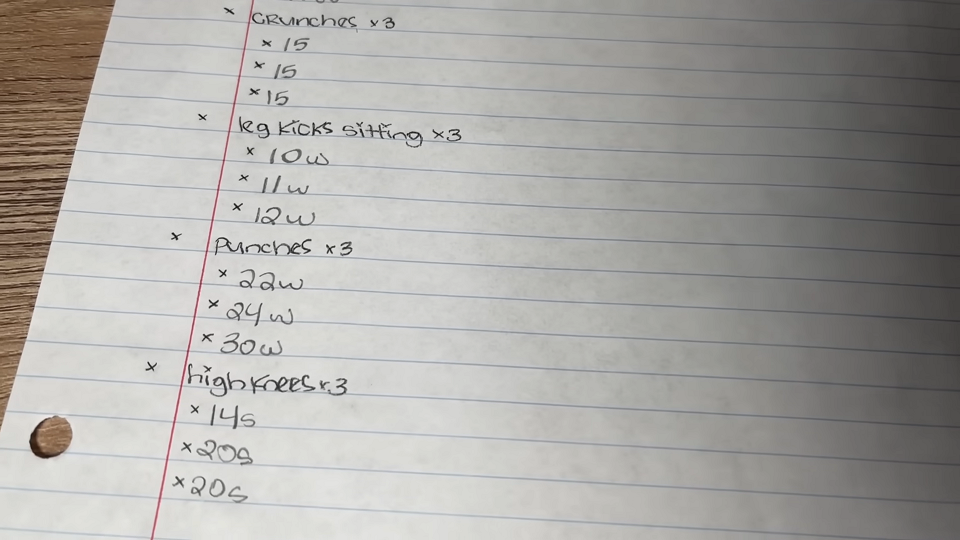 × CRunches ×3
× 15
× 15
× 15
× leg kicks sitting ×3
× 10w
× 11w
× 12w
× Punches ×3
× 22w
× 24w
× 30w
× high knees ×3
× 14s
× 20s
× 20s